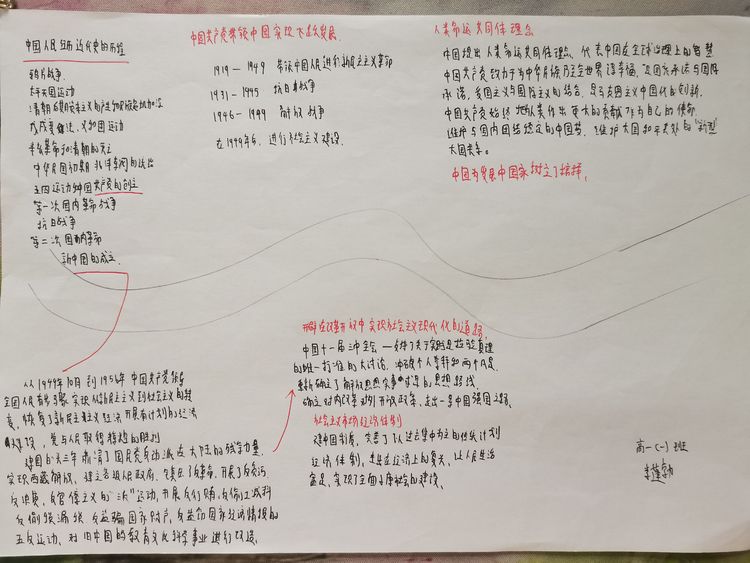 中国人民经历近代史的历经
鸦片战争
太平天国运动
戊戌变法、义和团运动
辛亥革命和清朝的灭亡
中华民国初期北洋军阀的统治
五四运动和中国共产党的创立
第一次国内革命战争
抗日战争
第二次国内革命
新中国的成立
中国共产党带领中国实现飞跃发展
1919—1949 带领中国人民进行新民主主义革命
1931—1945 抗日战争
1946—1949 解放战争
在1949年后，进行社会主义建设
人类命运共同体理念
中国提出人类命运共同体理念，代表中国在全球治理上的智慧
中国共产党致力于为中华民族乃至全世界谋幸福，是国家承诺与国际
承诺，爱国主义与国际主义的结合，是马克思主义中国化的创新。
中国共产党始终把为人类作出更大的贡献作为自己的使命，
维护与国内团结稳定的中国梦，维护大国和平共处的"新型"
大国关系。
中国为发展中国家树立了榜样。
从1949年10月到1956年中国共产党领导
全国人民有步骤实现从新民主主义到社会主义的转
变，恢复了新民主主义经济，开展有计划的经济
建设，
实现西藏解放，建立各级人民政府，镇压了反革命，开展了反贪污，
反浪费，反官僚主义的"三反"运动，开展反行贿，反偷工减料
反偷税漏税，反盗骗国家财产，反盗窃国家经济情报的
五反运动，对旧中国的教育文化科学事业进行改造。
开辟在改革开放中实现社会主义现代化的道路
中国十一届三中全会——支持了关于实践是检验真理
的唯一标准的大讨论，冲破个人崇拜和两个凡是，
重新确立了解放思想实事求是的思想路线
确立对内改革对外开放政策，走出一条中国强国之路。
社会主义市场经济体制
经济体制，走在经济上的复兴，让人民生活
富足，实现了全面小康社会的建设。
高一(一)班